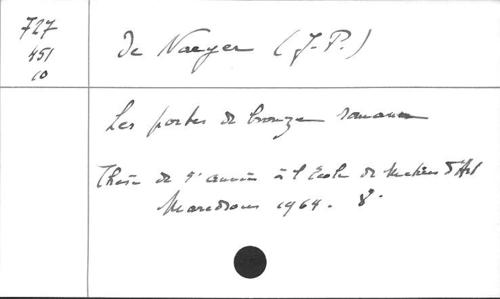 727
451
10
De Naeyer (J-P.)
Les portes de bronze romanes
Thèse de 5e année à l'Ecole de Metiers d'Art
Maredsous 1964. 8°.